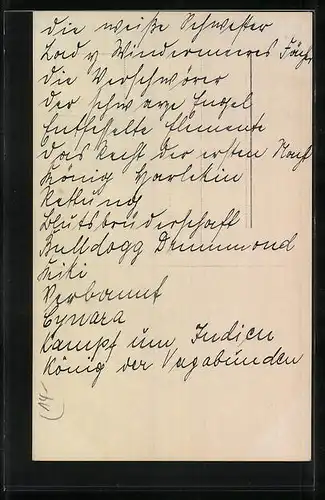 die weiße Schwester
Lady Windermeres Fäch
die Verschwörer
der schwarze Engel
Entfesselte Elemente
das Recht der ersten Nach
König Harlekin
Rettung
Blutsbrüderschaft
Bulldogg Drummond
Kiki
Verbannt
Cynara
Kampf um Indien
König der Vagabunden
14.-